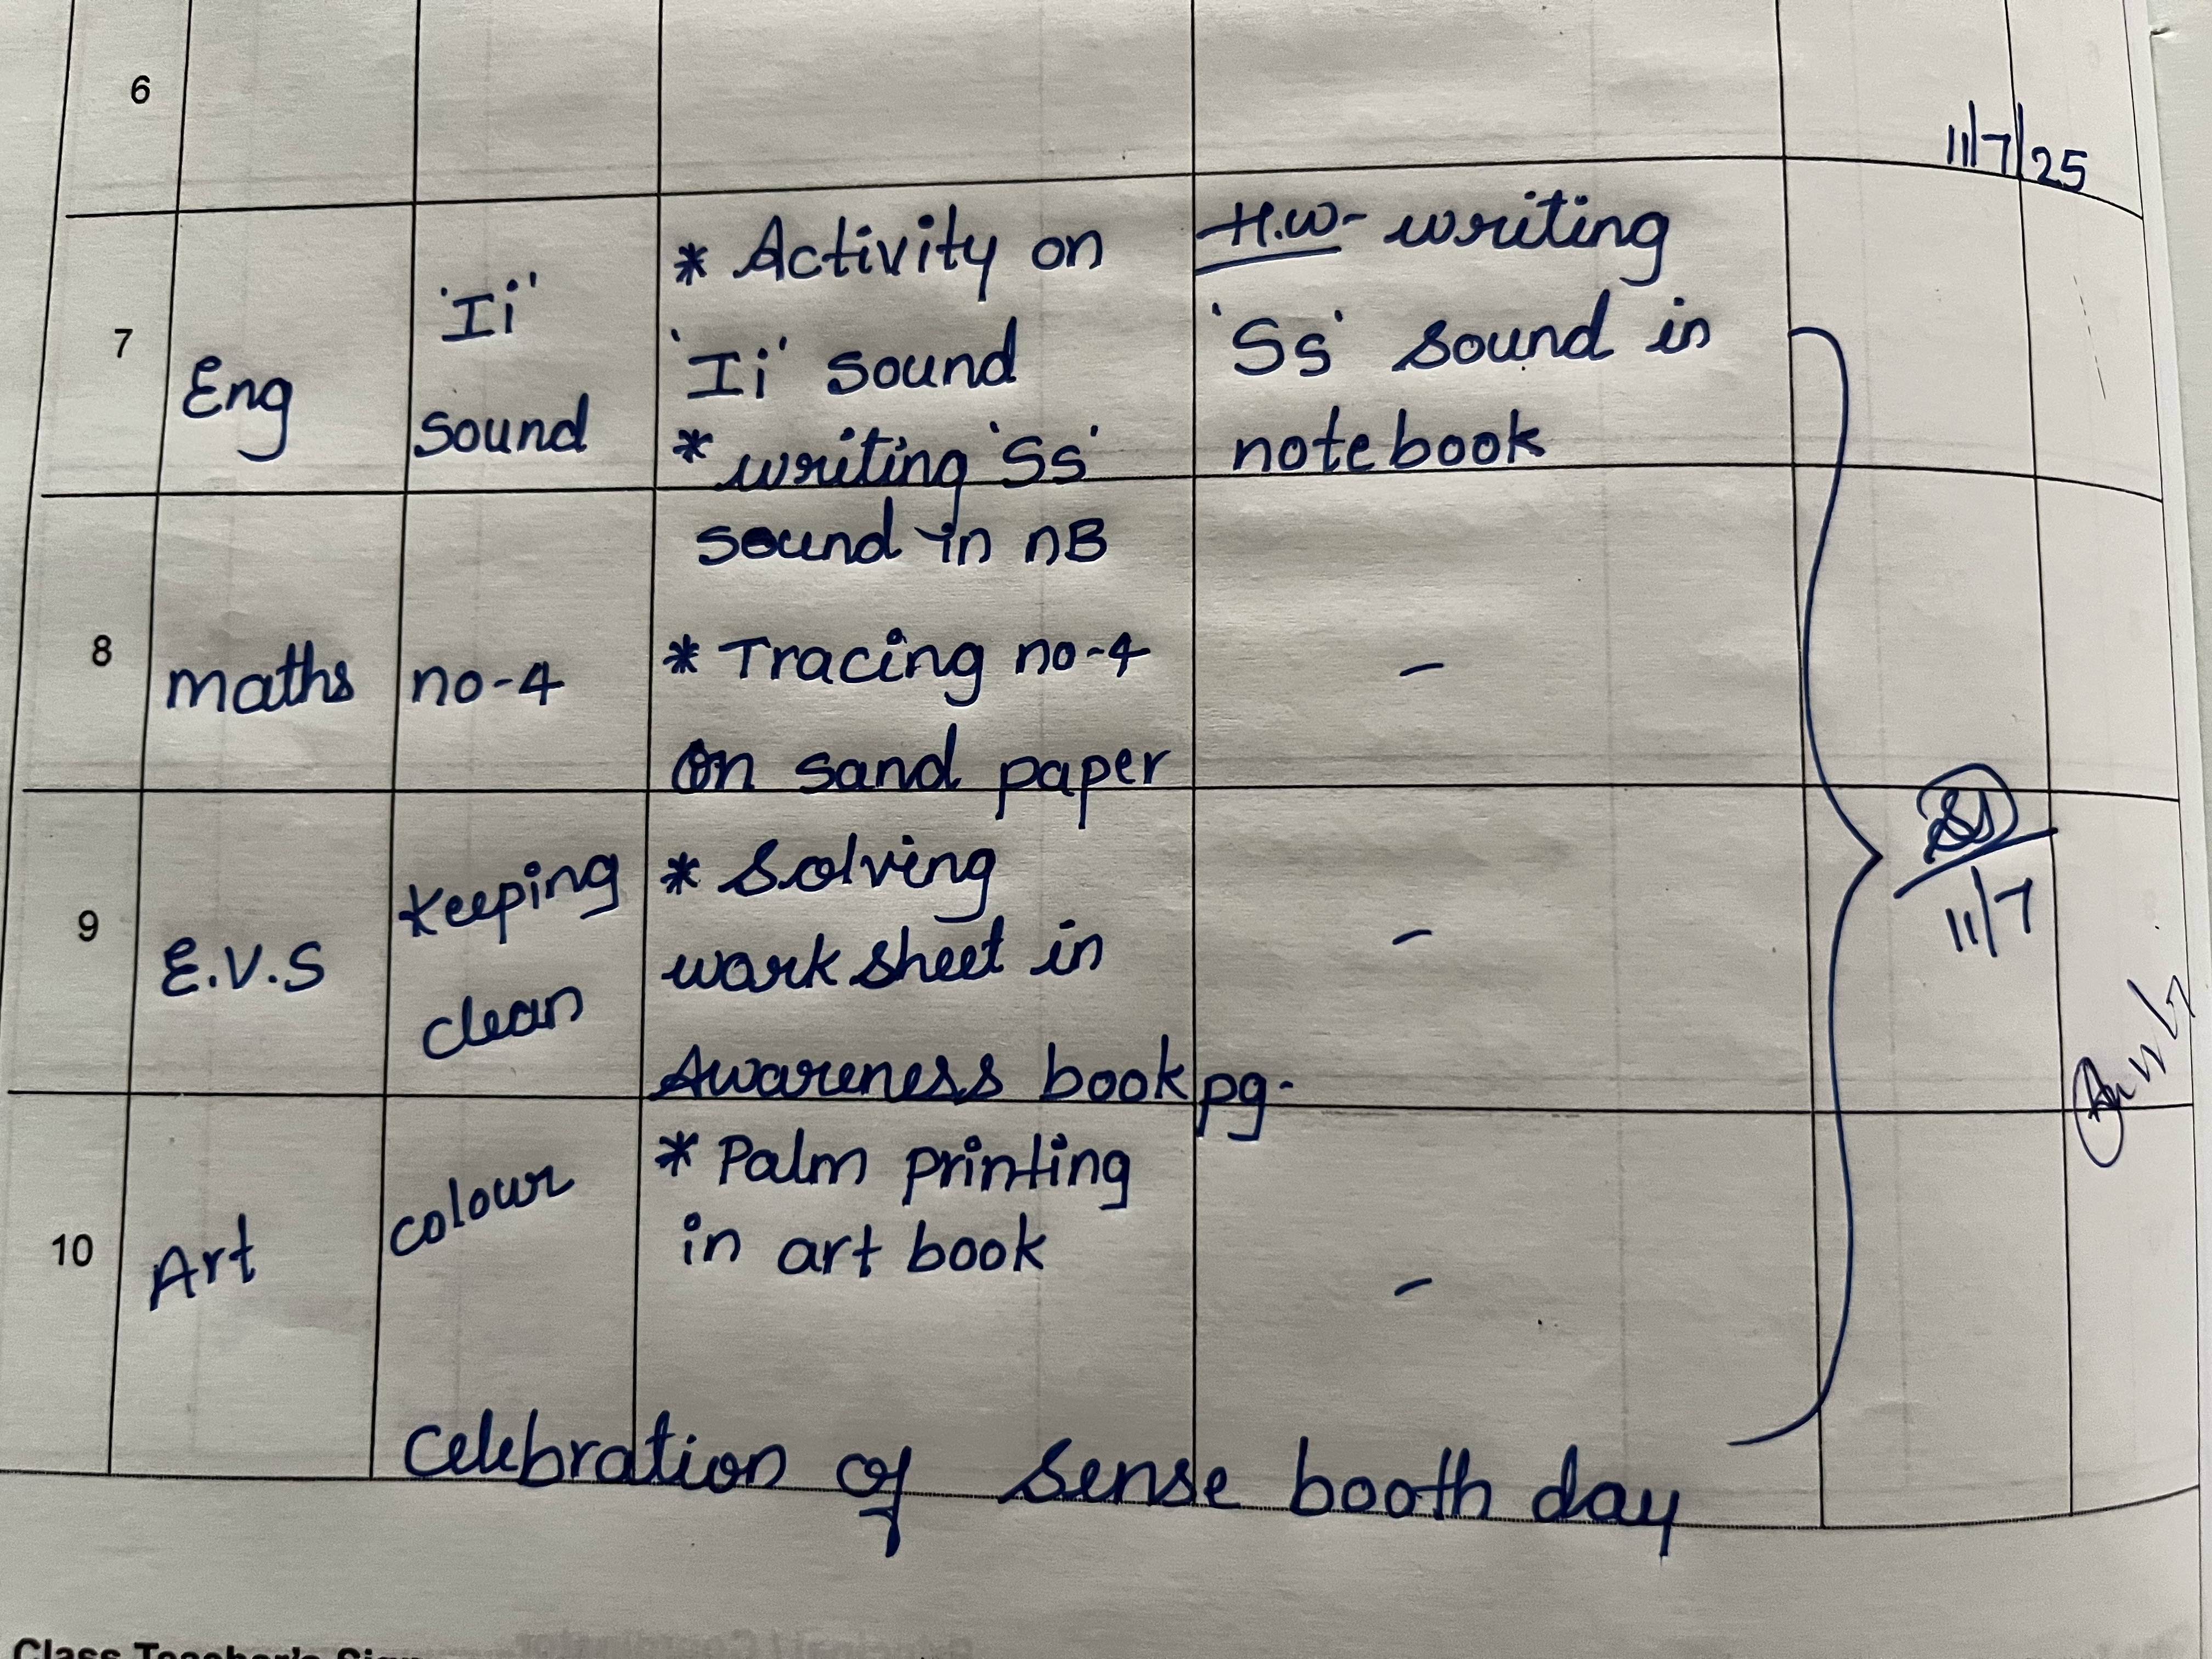 6
11/7/25
7
Eng
'Ii'
sound
* Activity on
'Ii' sound
* writing 'Ss'
sound in nB
H.W- writing
'Ss' sound in
notebook
8
maths
no-4
* Tracing no-4
on sand paper
-
9
E.V.S
Keeping
clean
* Solving
work sheet in
Awareness book pg.
-
11/7
10
Art
colour
* Palm printing
in art book
-
Celebration of sense booth day
Class Teacher's Sign